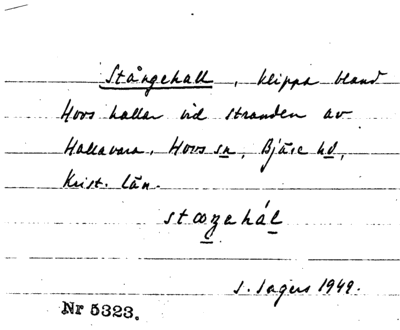 Stångehall, klippa bland
Hovs hallar vid stranden av
Hallavara, Hovs sn, Bjäre hd,
Krist. län.
I. Ingers 1949.
Nr 5323.